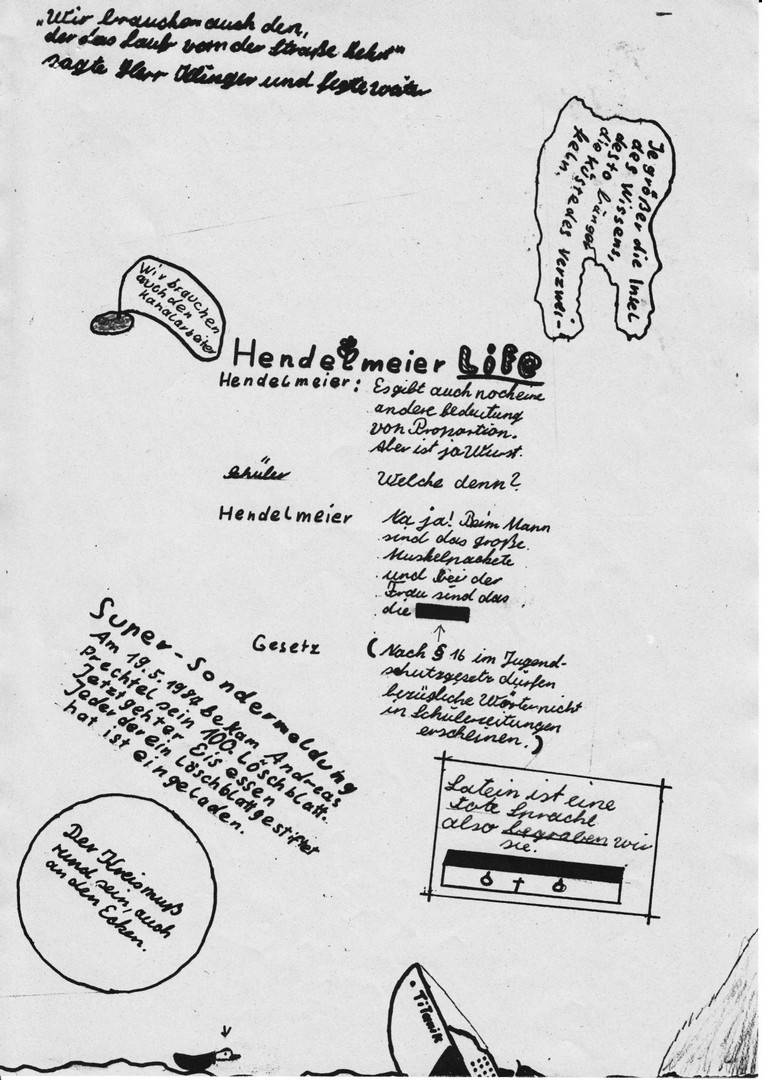 „Wir brauchen auch den,
der das Laub von der Straße kehrt"
sagte Herr Illinger und fegte weiter
Je größer die Insel
des Wissens,
desto länger
die Küste des Verzwei-
felns.
Wir brauchen
auch den
Kanalarbeiter
Hendelmeier Life
Hendelmeier: Es gibt auch noch eine
andere bedeutung
von Proportion.
Aber ist ja Wurst.
Schüler Welche denn?
Hendelmeier Na ja! Beim Mann
sind das große
Muskelpackete
und bei der
Frau sind das
die
Gesetz (Nach § 16 im Jugend-
schutzgesetz dürfen
bezügliche Wörter nicht
in Schülerzeitungen
erscheinen.)
Super-Sondermeldung
Am 19.5.1984 bekam Andreas
Prechtel sein 100. Löschblatt.
Jetzt geht er Eis essen
Jeder der ein Löschblatt gestiftet
hat ist eingeladen.
Latein ist eine
tote Sprache
also begraben wir
sie.
Der Kreis muß
rund sein, auch
an den Ecken.
Titanik